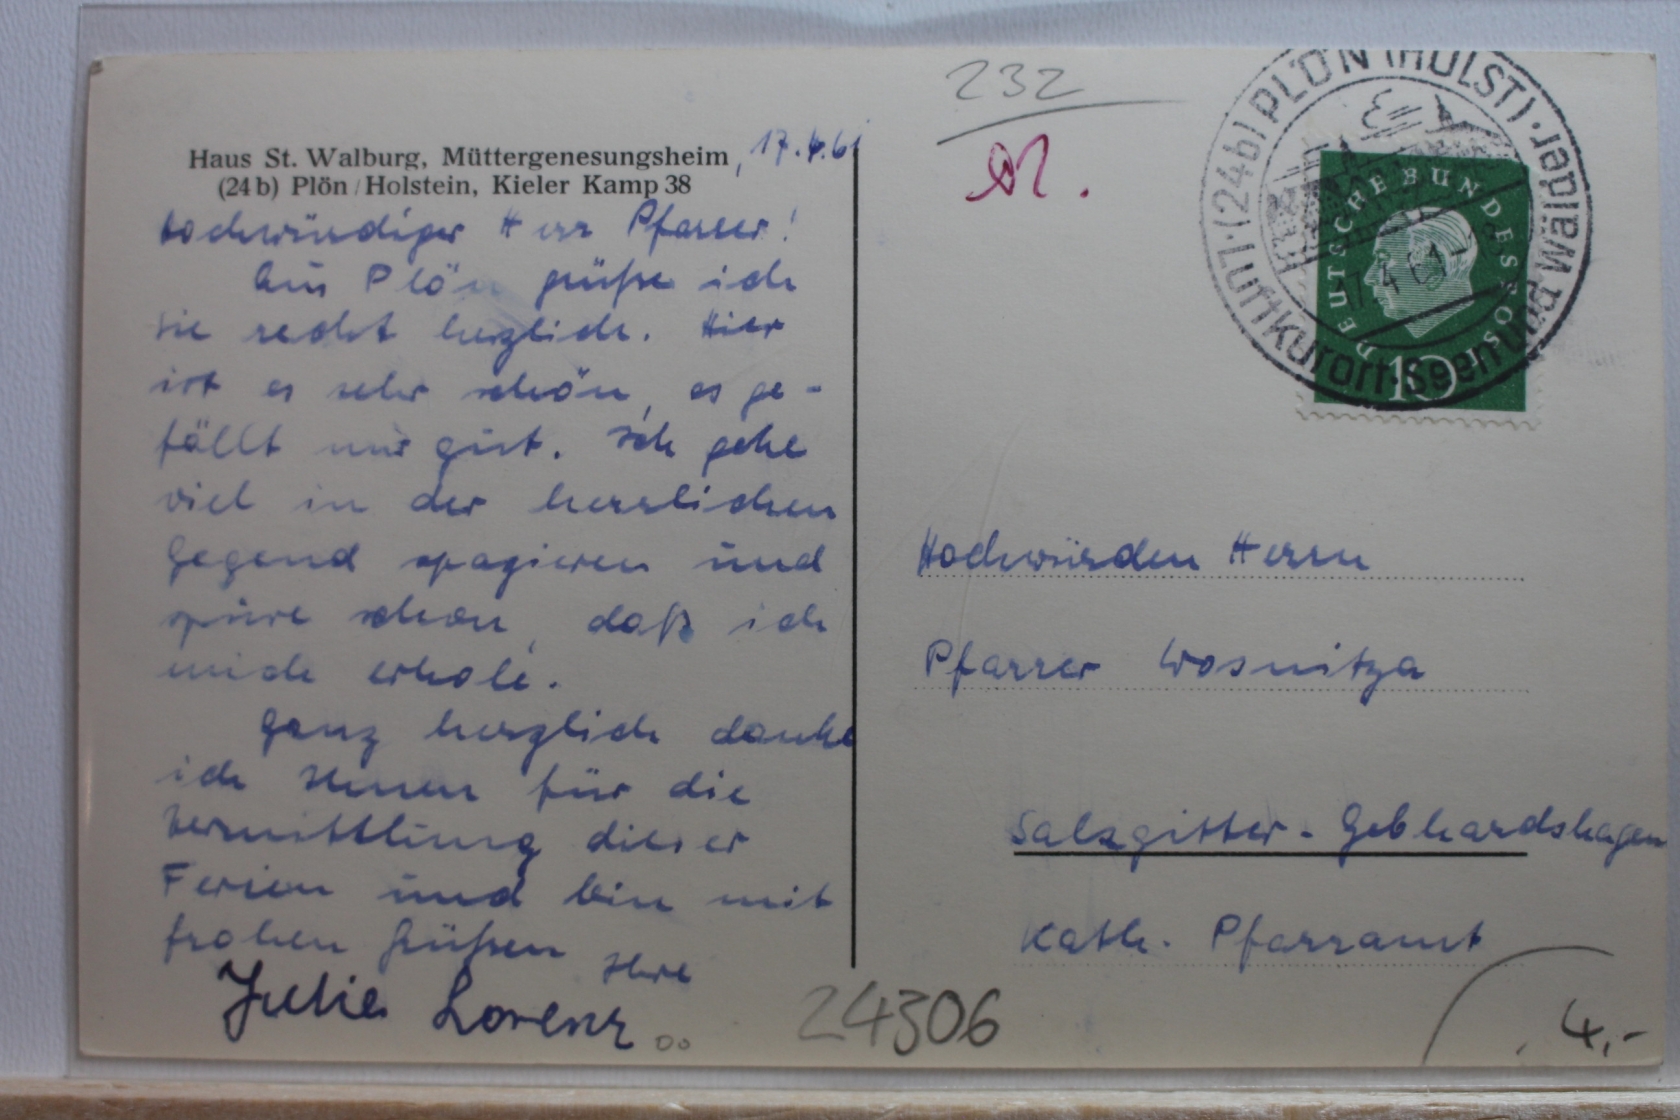 Haus St. Walburg, Müttergenesungsheim, 17.4.61
(24b) Plön/Holstein, Kieler Kamp 38
Hochwürdiger Herr Pfarrer!
Aus Plön grüße ich
Sie recht herzlich. Hier
ist es sehr schön, es ge-
fällt mir gut. Ich gehe
viel in der herrlichen
Gegend spazieren und
spüre schon, daß ich
mich erhole.
Ganz herzlich danke
ich Ihnen für die
Vermittlung dieser
Ferien und bin mit
frohen Grüßen Ihre
Julie Lorenz
232
(24b) PLÖN (HOLST)
Luftkurort · Seen und Wälder
17.4.61
DEUTSCHE BUNDESPOST
10
Hochwürden Herrn
Pfarrer Wosnitza
Salzgitter-Gebhardshagen
Kath. Pfarramt
24306
4,-